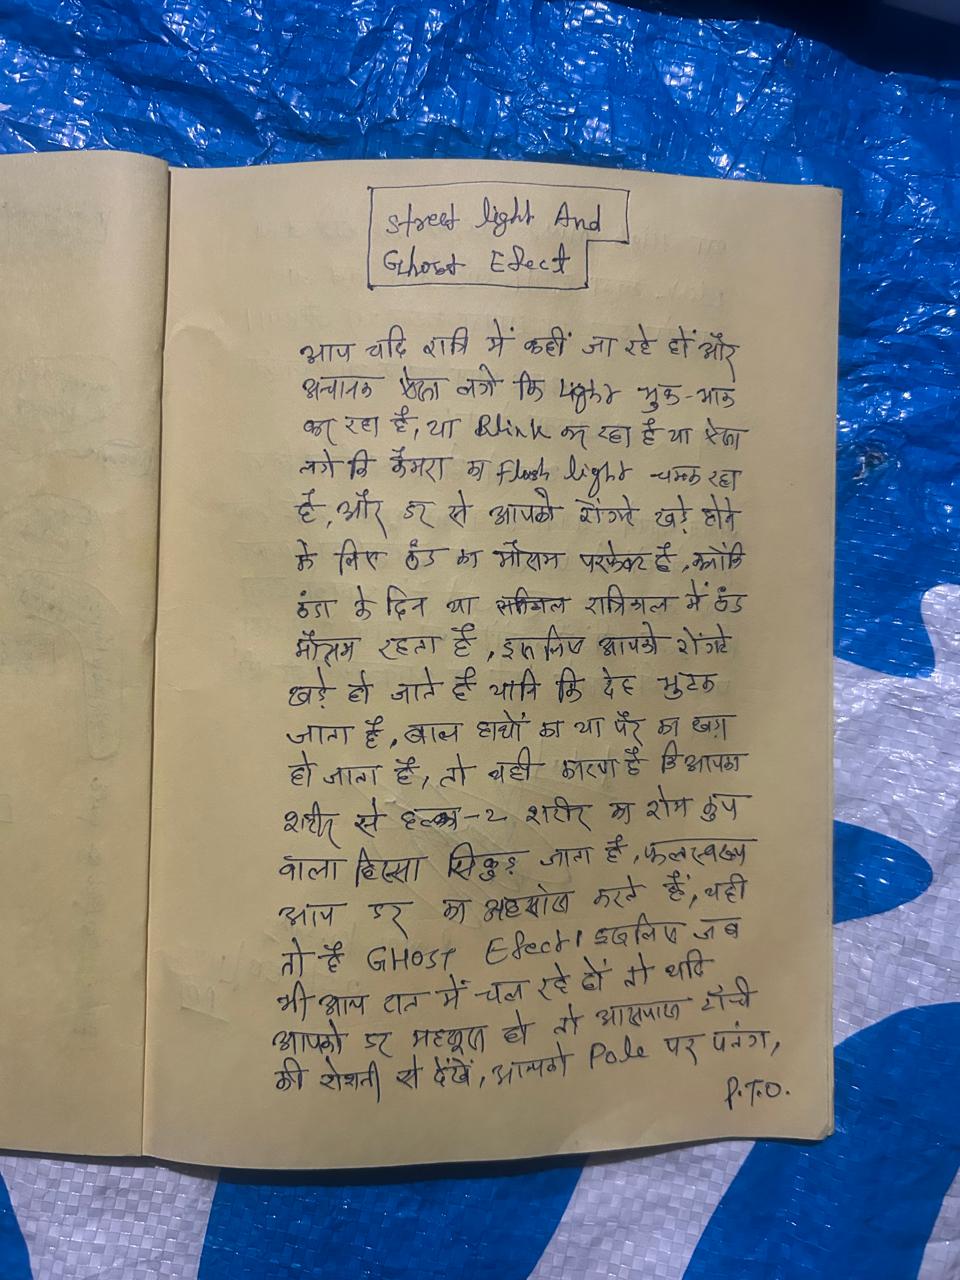 street light And
Ghost Efect
आप यदि रात्रि में कहीं जा रहे हों और
अचानक ऐसा लगे कि Light भुक-भाक
कर रहा है, या Blink कर रहा है या ऐसा
लगे कि कैमरा का flash light चमक रहा
है, और डर से आपको रोंगटे खड़े होने
के लिए ठंड का मौसम परफेक्ट है, क्योंकि
ठंडा के दिन या रात्रिकाल में ठंड
मौसम रहता है, इसलिए आपको रोंगटे
खड़े हो जाते हैं यानि कि देह भुटक
जाता है, बाल हाथों का या पैर का खड़ा
हो जाता है, तो यही कारण है कि आपका
शरीर से हल्का-2 शरीर का रोम कुप
वाला हिस्सा सिकुड़ जाता है, फलस्वरूप
आप डर का अहसास करते हैं, यही
तो है GHOST Efect। इसलिए जब
भी आप रात में चल रहे हों तो यदि
आपको डर महसूस हो तो आसपास टॉर्च
की रोशनी से देखें, आपको Pole पर पतंग,
P.T.O.